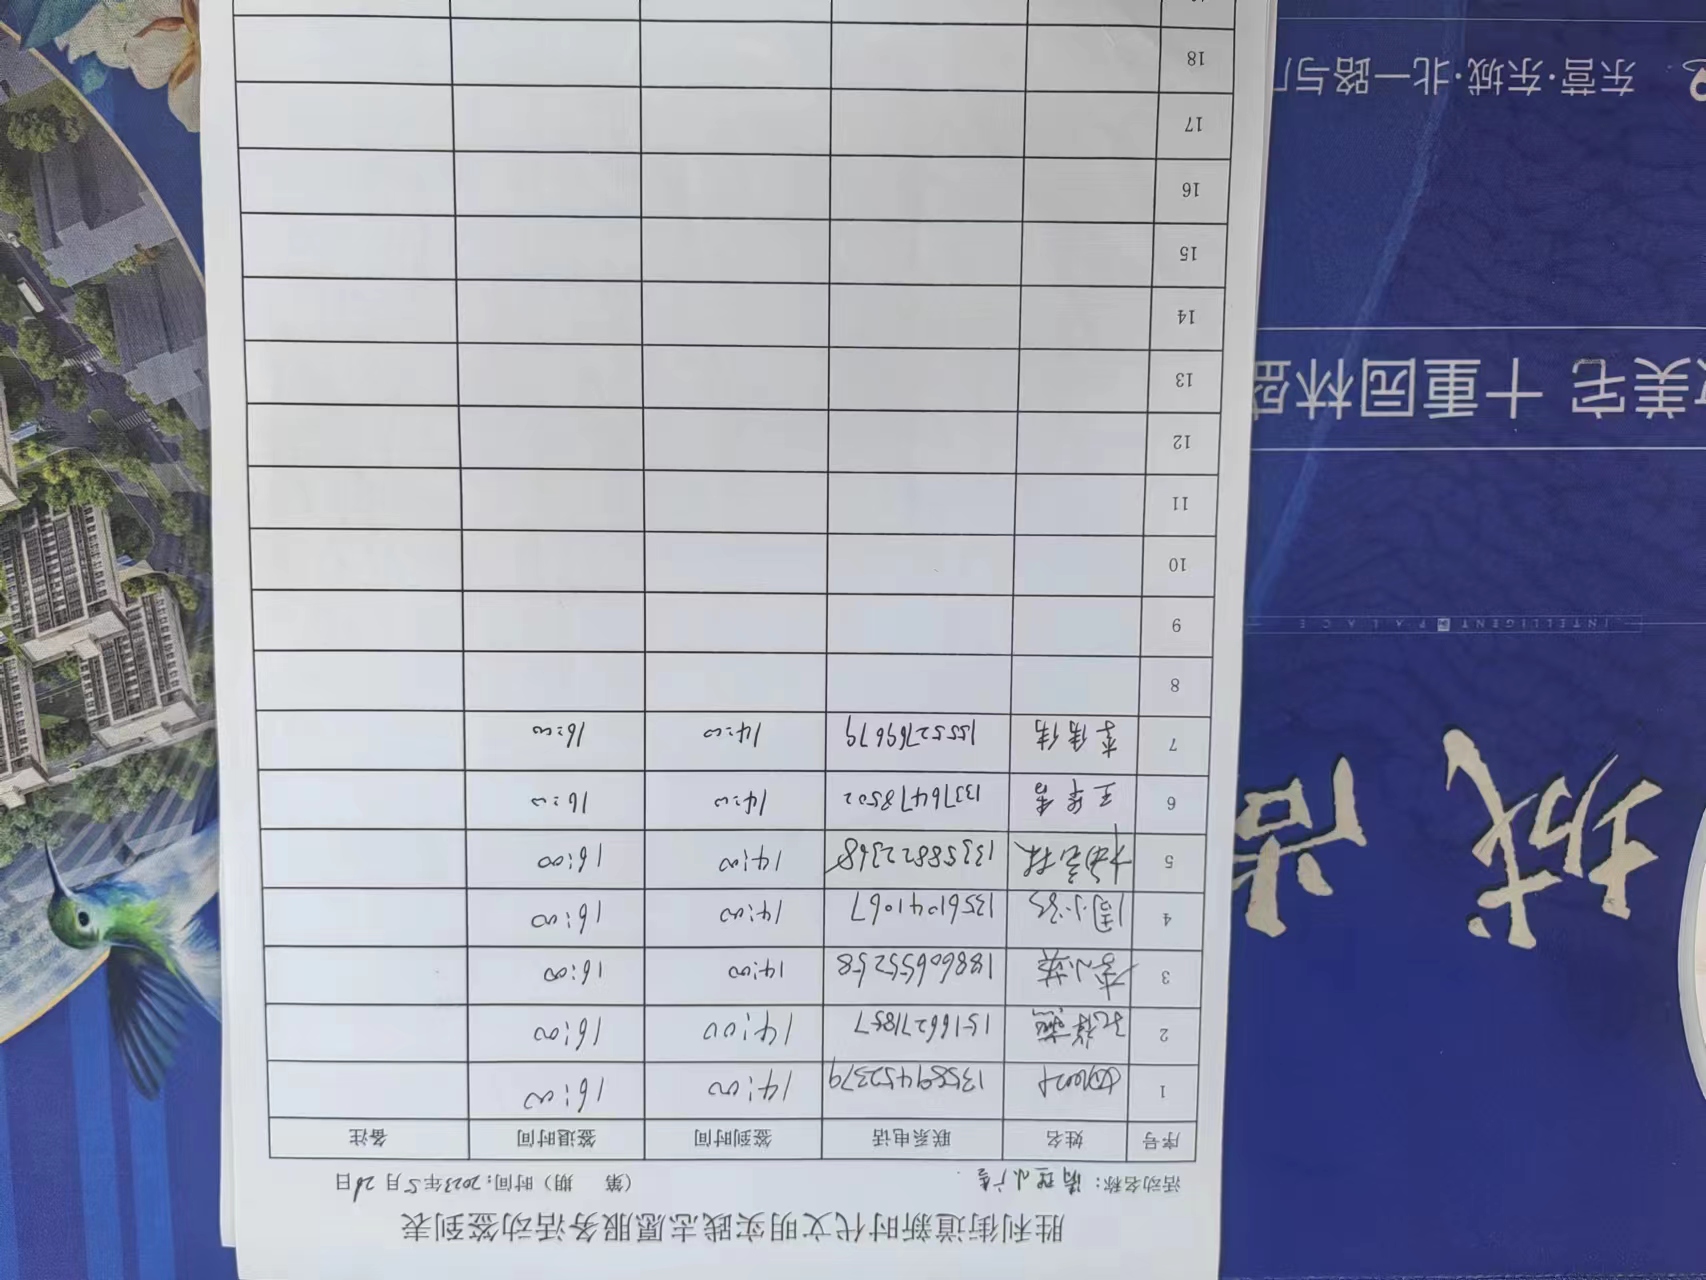 胜利街道新时代文明实践志愿服务活动签到表
活动名称：清理小广告. （第 期）时间：2023年5月21日
序号 姓名 联系电话 签到时间 签退时间 备注
1 13589452379 14:00 16:00
2 15166271857 14:00 16:00
3 李小英 18860655258 14:00 16:00
4 周小 13561041067 14:00 16:00
5 13358822368 14:00 16:00
6 王军香 13376478502 14:00 16:00
7 李伟伟 15552769679 14:00 16:00
8
9
10
11
12
13
14
15
16
17
18
东营·东城·北一路与广
美宅 十重园林盛
INTELLIGENT PALACE
城
尚